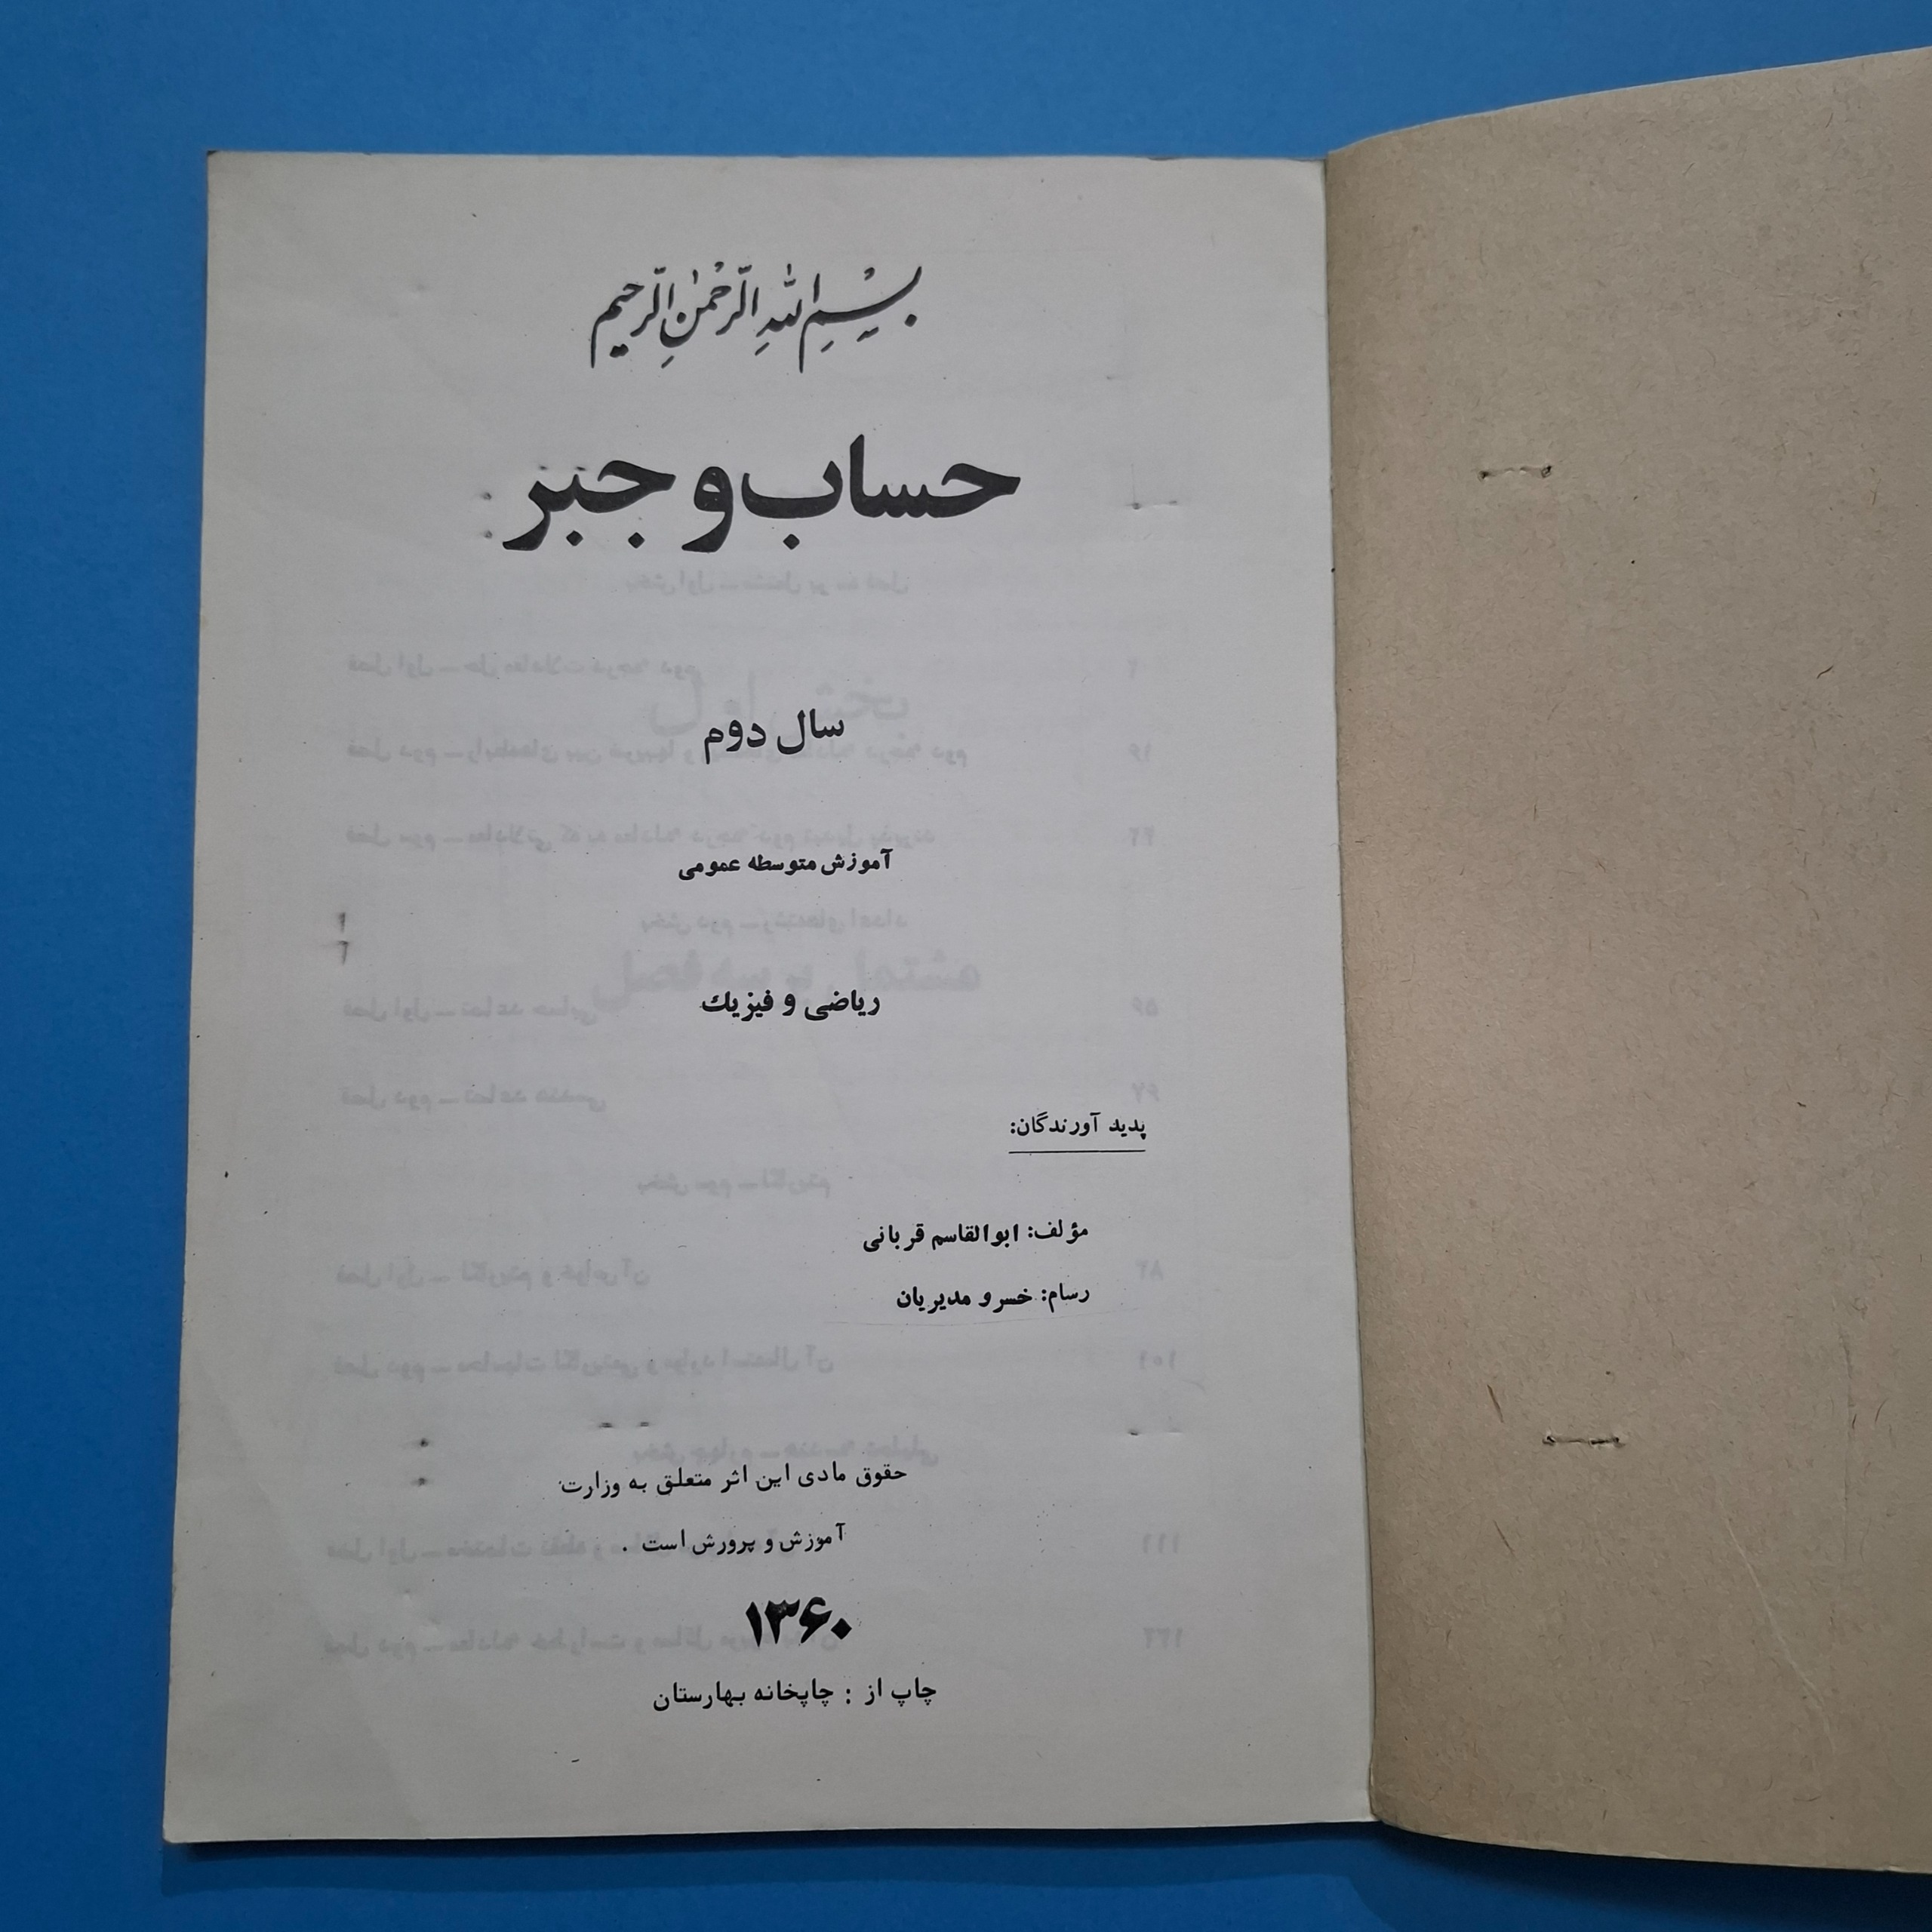 بِسْمِ اللهِ الرَّحْمٰنِ الرَّحیم
حساب و جبر
سال دوم
آموزش متوسطه عمومی
ریاضی و فیزیك
پدید آورندگان:
مؤلف: ابوالقاسم قربانی
رسام: خسرو مدیریان
حقوق مادی این اثر متعلق به وزارت
آموزش و پرورش است .
۱۳۶۰
چاپ از : چاپخانه بهارستان